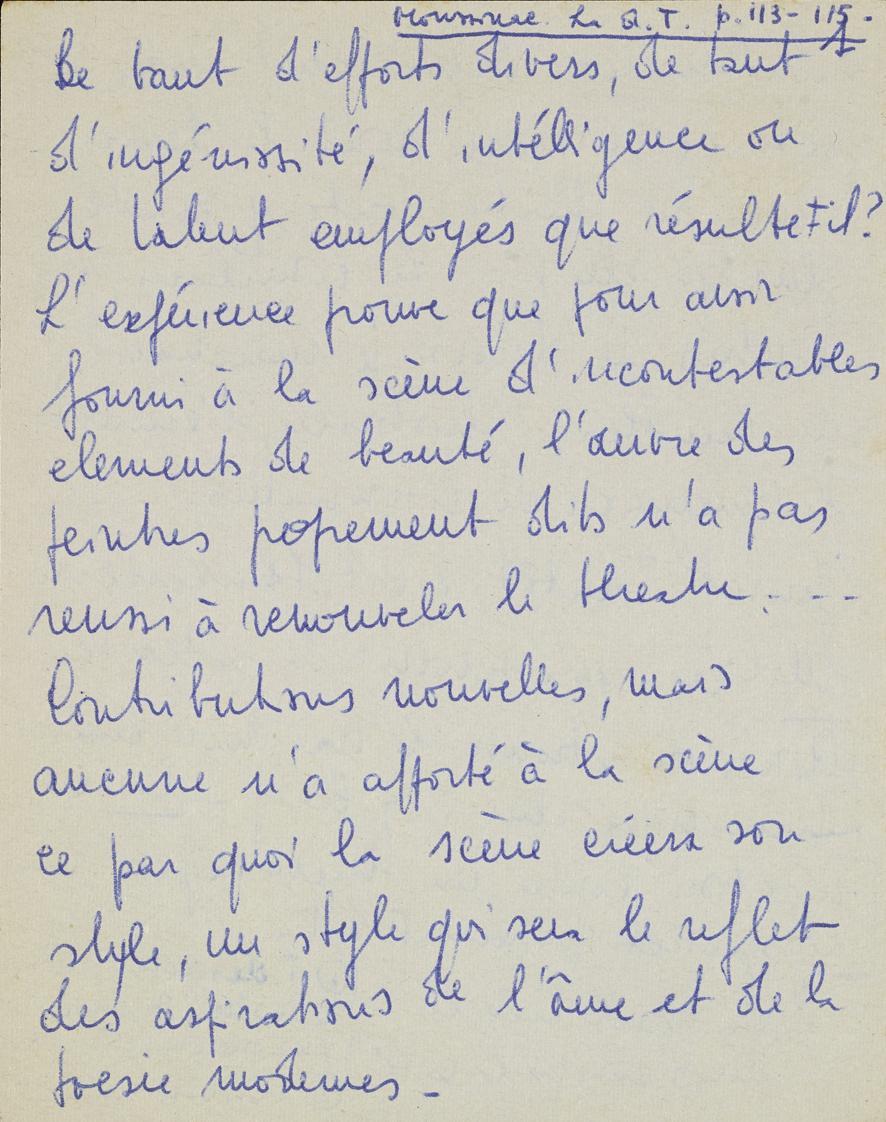 Moussinac. La d. T. p. 113-115.
De tant d'efforts divers, de tant 1
d'ingéniosité, d'intélligence ou
de talent employés que résulte-t-il?
L'expérience prouve que pour avoir
fourni à la scène d'incontestables
elements de beauté, l'œuvre des
peintres proprement dits n'a pas
reussi à renouveler le theatre. - - -
Contributions nouvelles, mais
aucune n'a apporté à la scène
ce par quoi la scène créera son
style, un style qui sera le reflet
des aspirations de l'âme et de la
poesie modernes -